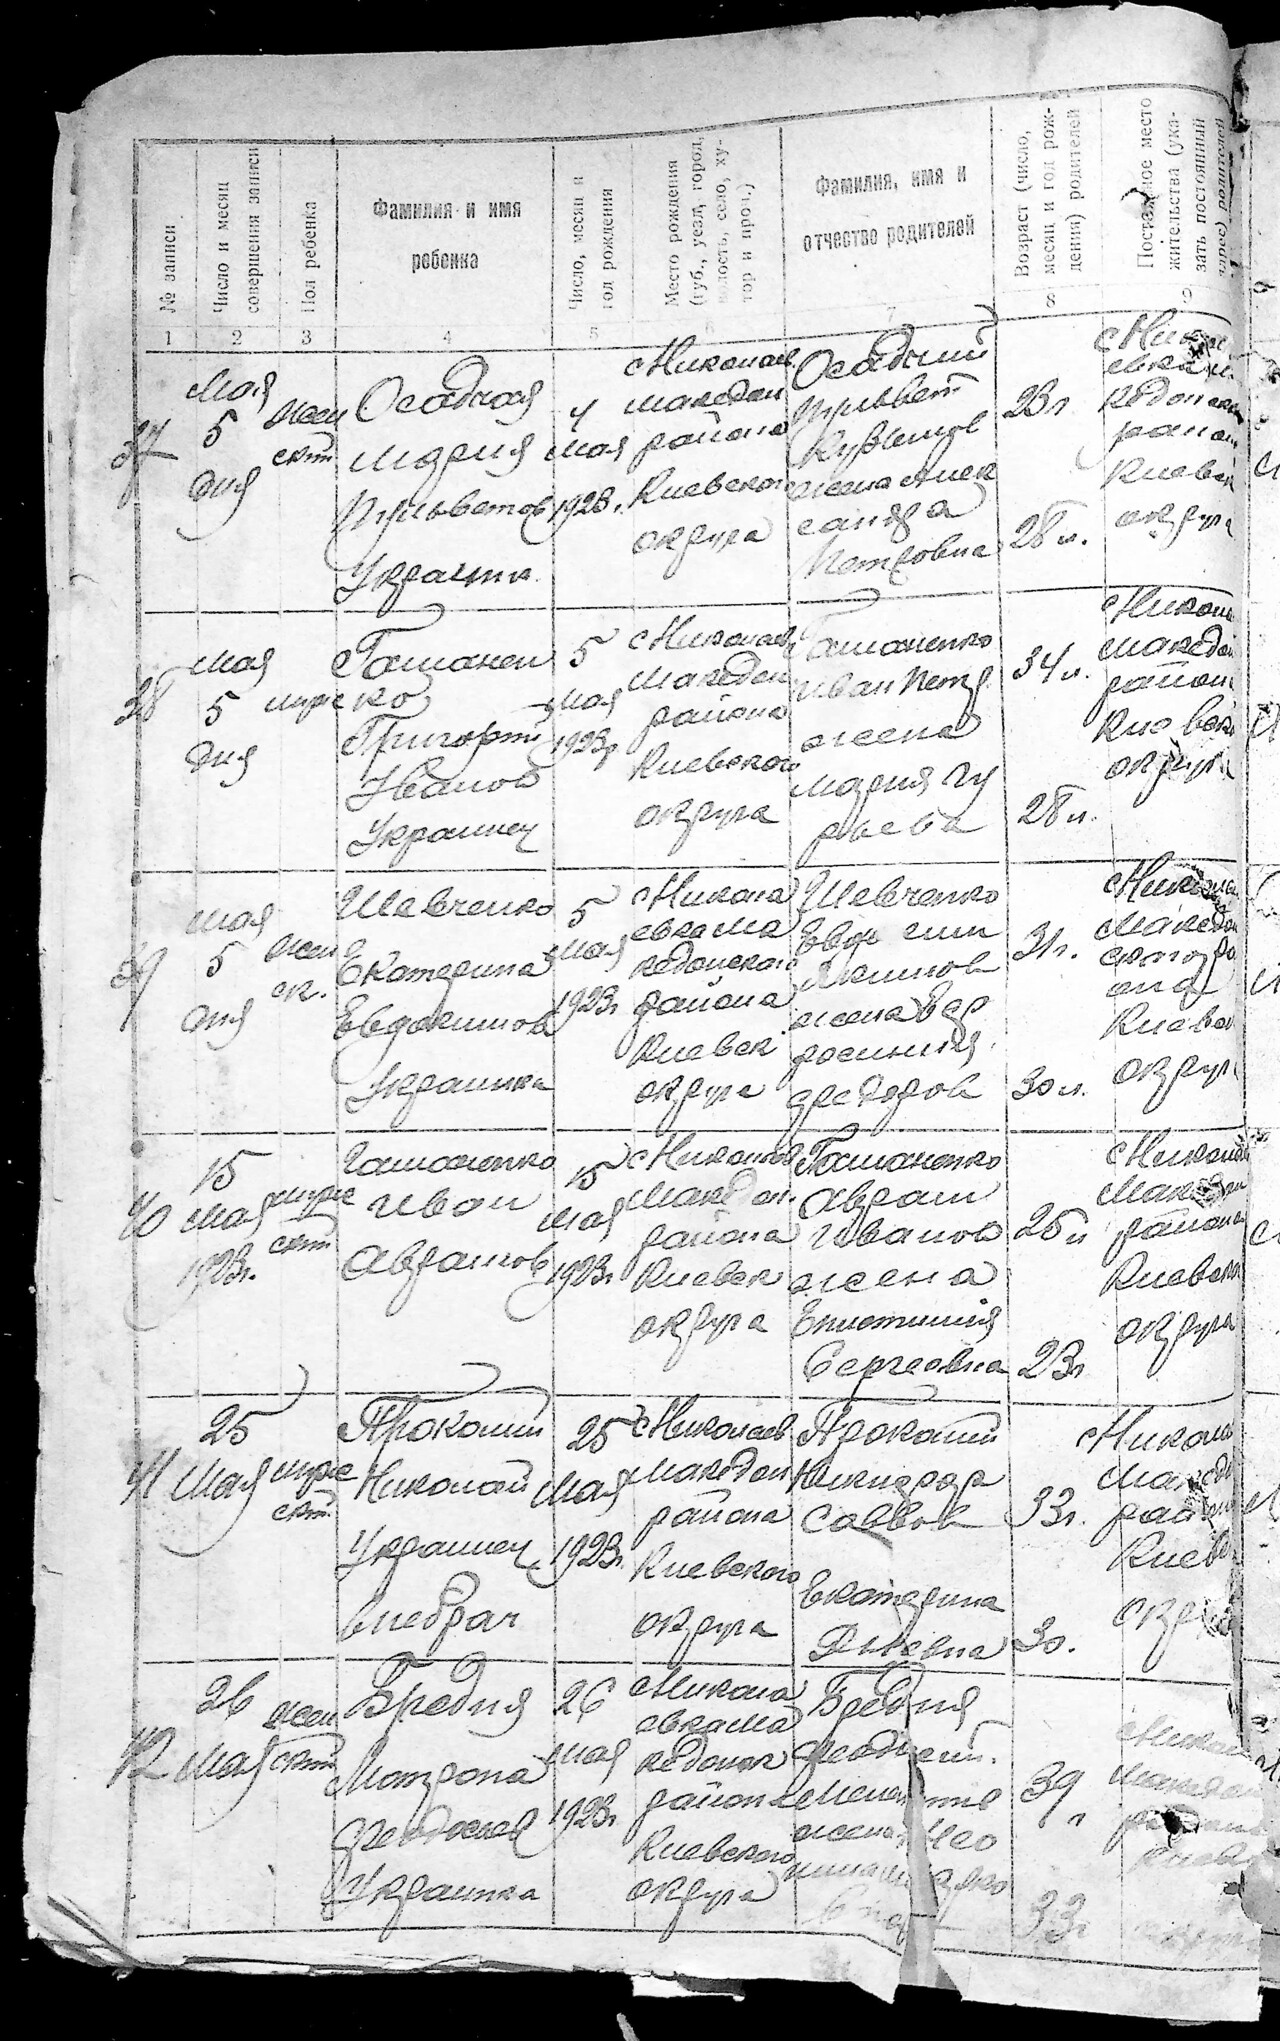 № записи
Число и месяц совершения записи
Пол ребенка
Фамилия и имя
ребенка
Число, месяц и год рождения
Место рождения (губ., уезд, город, волость, село, хутор и проч.)
Фамилия, имя и
отчество родителей
Возраст (число, месяц и год рождения) родителей
Постоянное место жительства (указать постоянный адрес) родителей
1 2 3 4 5 6 7 8 9
37
Мая
5
дня
жен
ский
Осадчая
Мария
Украинк
4
Мая
1923г.
с Николаев
Македон
района
Киевского
округа
Осадчий
жена Алек
сандра
Петровна
23г
28л.
района
Киевск
округа
38
Мая
5
дня
муж
Гашанен
ко
Григорий
Иванов
Украинец
5
Мая
1923г
с Николаев
Македон
района
Киевского
округа
Гашаненко
Иван Петр
жена
Мария Гу
рьева
34л.
28л.
с Никола
Македон
района
Киевск
округа
39
Мая
5
дня
жен
ск.
Шевченко
Екатерина
Евдокимов
Украинка
5
Мая
1923г
с Никола
евка Ма
кедонского
района
Киевск
округа
Шевченко
Акимов
жена Евф
росиния
Федоров
31г.
30л.
с Николае
Македон
ского ра
она
Киевск
округа
40
15
Мая
1923г.
муж
ский
Гашаненко
Иван
Аврамов
15
Мая
1923г
с Николаев
Македон.
района
Киевск
округа
Гашаненко
Аврам
Иванов
жена
Епистимия
Сергеевна
25л
23г
с Николаев
Македон
района
Киевск
округа
41
25
Мая
муж
ский
Прокопий
Николай
Украинец
внебрач
25
Мая
1923г.
с Николаев
Македон
района
Киевского
округа
Прокопий
Никифор
Саввов
Екатерина
33г.
30.
с Никола
Македо
район
Киев
округ
42
26
Мая
жен
ский
Бредня
Матрона
Феодосиев
Украинка
26
Мая
1923г
с Никола
евка Ма
кедонск
района
Киевского
округа
Бредня
жена
39
г
33г